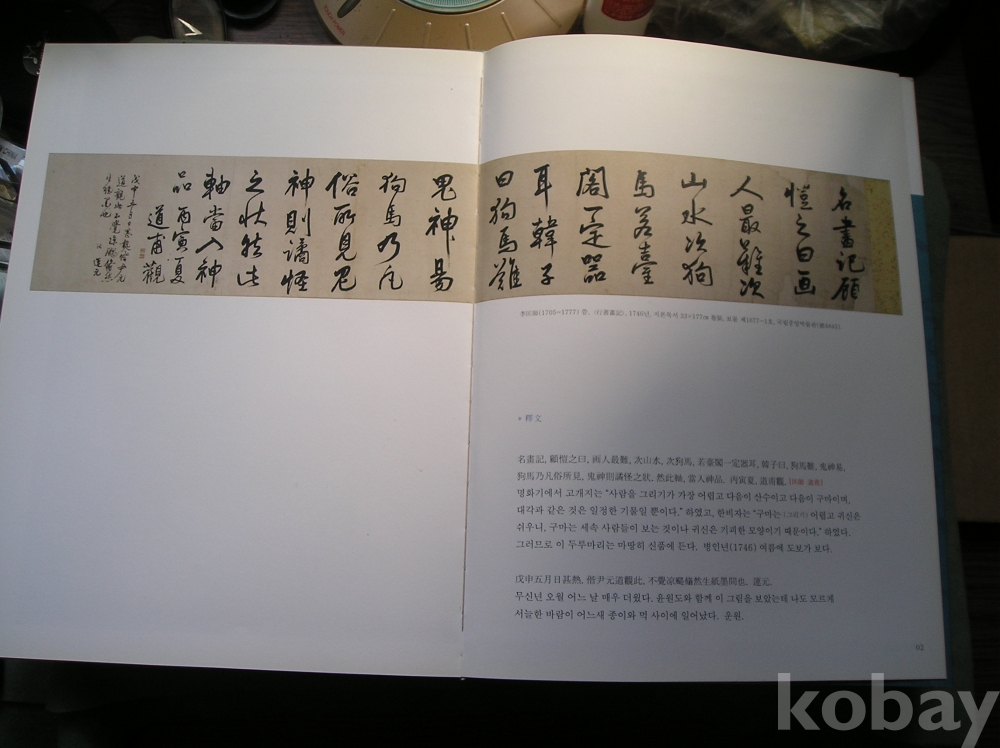 名畫記顧
愷之曰畫
人最難次
山水次狗
馬若臺
閣一定器
耳韓子
曰狗馬難
鬼神易
狗馬乃凡
俗所見鬼
神則譎怪
之狀然此
軸當入神
品丙寅夏
道甫觀
* 釋文
名畫記, 顧愷之曰, 兩人最難, 次山水, 次狗馬, 若臺閣一定器耳, 韓子曰, 狗馬難, 鬼神易,
狗馬乃凡俗所見, 鬼神則譎怪之狀, 然此軸, 當入神品. 丙寅夏, 道甫觀,
명화기에서 고개지는 “사람을 그리기가 가장 어렵고 다음이 산수이고 다음이 구마이며,
대각과 같은 것은 일정한 기물일 뿐이다.” 하였고, 한비자는 “구마는 (그리기) 어렵고 귀신은
쉬우니, 구마는 세속 사람들이 보는 것이나 귀신은 기괴한 모양이기 때문이다.” 하였다.
그러므로 이 두루마리는 마땅히 신품에 든다. 병인년(1746) 여름에 도보가 보다.
戊申五月日甚熱, 偕尹元道觀此, 不覺凉颸翛然生紙墨間也. 運元.
무신년 오월 어느 날 매우 더웠다. 윤원도와 함께 이 그림을 보았는데 나도 모르게
서늘한 바람이 어느새 종이와 먹 사이에 일어났다. 운원.
kobay